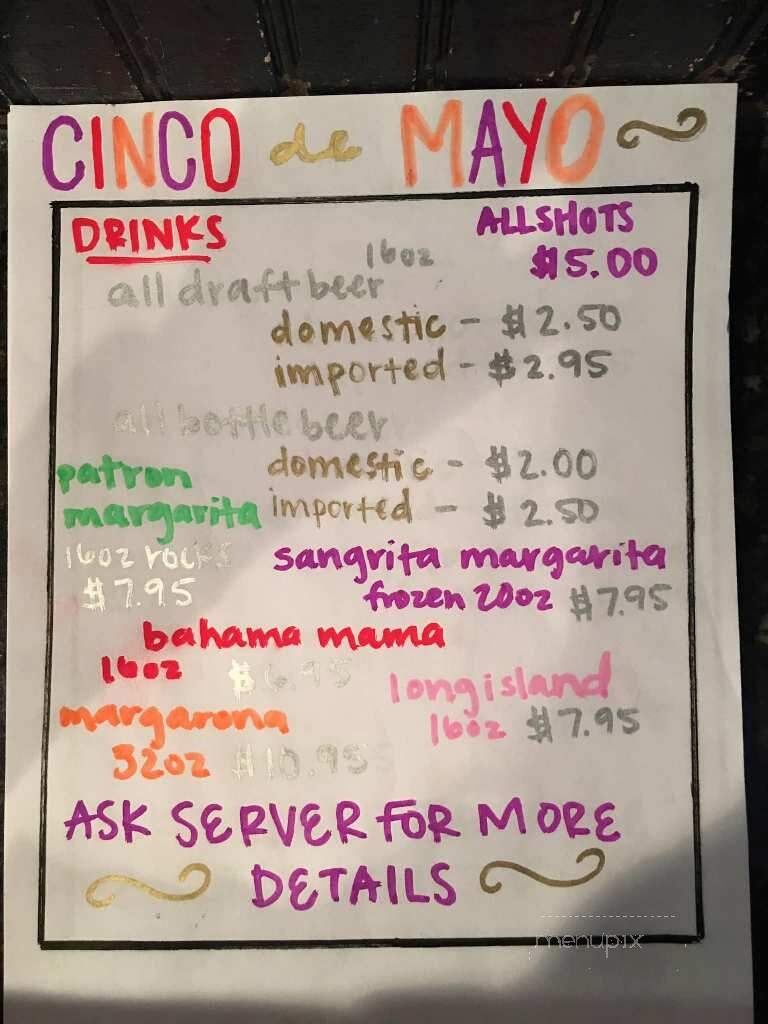 CINCO de MAYO
DRINKS
ALL SHOTS
$5.00
16oz
all draft beer
domestic - $2.50
imported - $2.95
all bottle beer
domestic - $2.00
imported - $2.50
patron
margarita
16oz rocks
$7.95
sangrita margarita
frozen 20oz $7.95
bahama mama
16oz $6.95
longisland
16oz $7.95
margarona
32oz $10.95
ASK SERVER FOR MORE
DETAILS
menupix